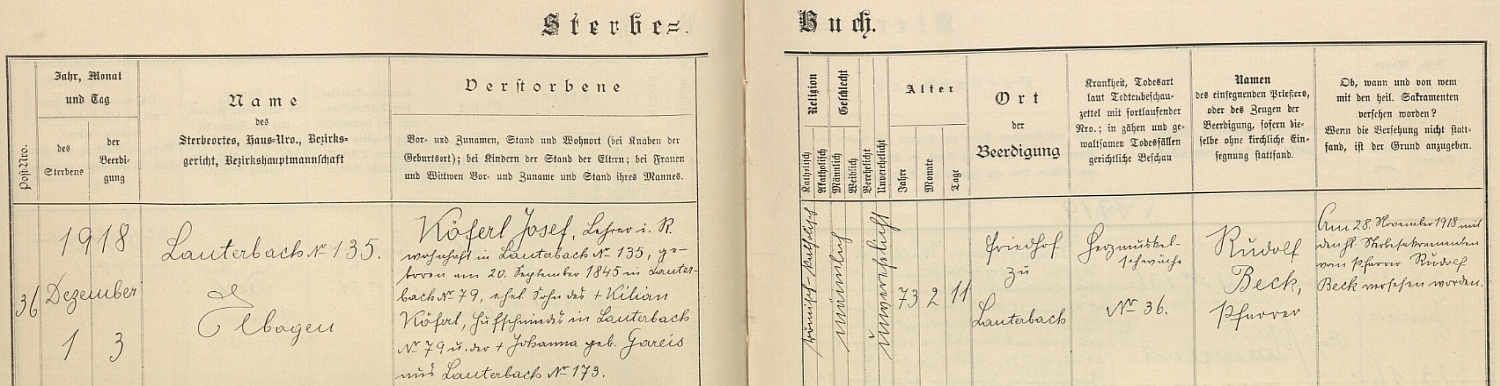 Sterbe=
Buch.
Post-Nro.
Jahr, Monat
und Tag
des
Sterbens
der
Beerdi-
gung
Name
des
Sterbeortes, Haus-Nro., Bezirks-
gericht, Bezirkshauptmannschaft
Verstorbene
Vor- und Zunamen, Stand und Wohnort (bei Knaben der
Geburtsort); bei Kindern der Stand der Eltern; bei Frauen
und Witwen Vor- und Zuname und Stand ihres Mannes.
Religion
Katholisch
Akatholisch
Geschlecht
Männlich
Weiblich
Verehelicht
Unverehelicht
Alter
Jahre
Monate
Tage
Ort
der
Beerdigung
Krankheit, Todesart
laut Todtenbeschau-
zettel mit fortlaufender
Nro.; in gähen und ge-
waltsamen Todesfällen
gerichtliche Beschau
Namen
des einsegnenden Priesters,
oder des Zeugen der
Beerdigung, sofern die-
selbe ohne kirchliche Ein-
segnung stattfand.
Ob, wann und von wem
mit den heil. Sakramenten
versehen worden?
Wenn die Versehung nicht statt-
fand, ist der Grund anzugeben.
36
1918
Dezember
1 3
Lauterbach No 135.
Elbogen
Köferl Josef, Lehrer i. R.
wohnhaft in Lauterbach No 135, ge-
boren am 20. September 1845 in Lauter-
bach No 79, ehel. Sohn des + Kilian
Köferl, Hufschmiedes in Lauterbach
No 79 u. der + Johanna geb. Gareis
aus Lauterbach No 173.
römisch-katholisch
männlich
unverehelicht
73 2 11
Friedhof
zu
Lauterbach
Herzmuskel-
schwäche
No 36.
Rudolf
Beck,
Pfarrer
Am 28. November 1918 mit
den hl. Sterbesakramenten
vom Pfarrer Rudolf
Beck versehen worden.